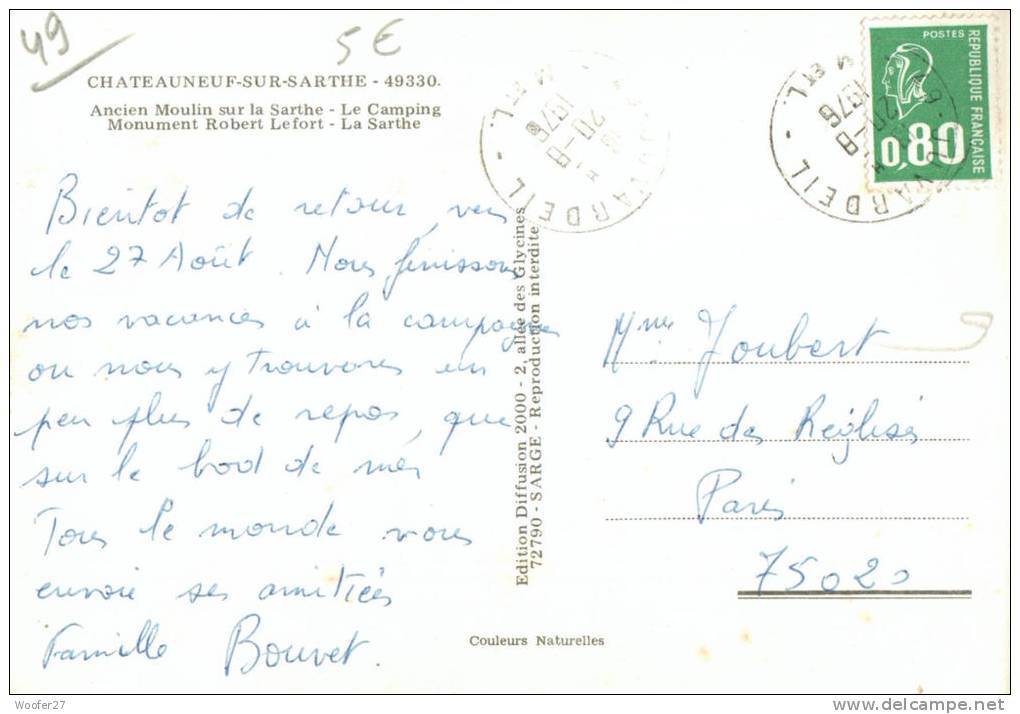 49
5 €
CHATEAUNEUF-SUR-SARTHE - 49330.
Ancien Moulin sur la Sarthe - Le Camping
Monument Robert Lefort - La Sarthe
Bientot de retour, vers
le 27 Août. Nous finissons
nos vacances à la campagne
ou nous y trouvons un
peu plus de repos, que
sur le bod de mer
Tous le monde vous
envoie ses amitiés
Famille Bouvet.
Edition Diffusion 2000 - 2, allée des Glycines
72790 - SARGE - Reproduction interdite
Couleurs Naturelles
POSTES
REPUBLIQUE FRANÇAISE
0,80
JUVARDEIL
M ET L.
20-8
1976
JUVARDEIL
M ET L.
20-8
1976
Mme Joubert
9 Rue des Réglises
Paris
75020
Woofer27
delcampe.net